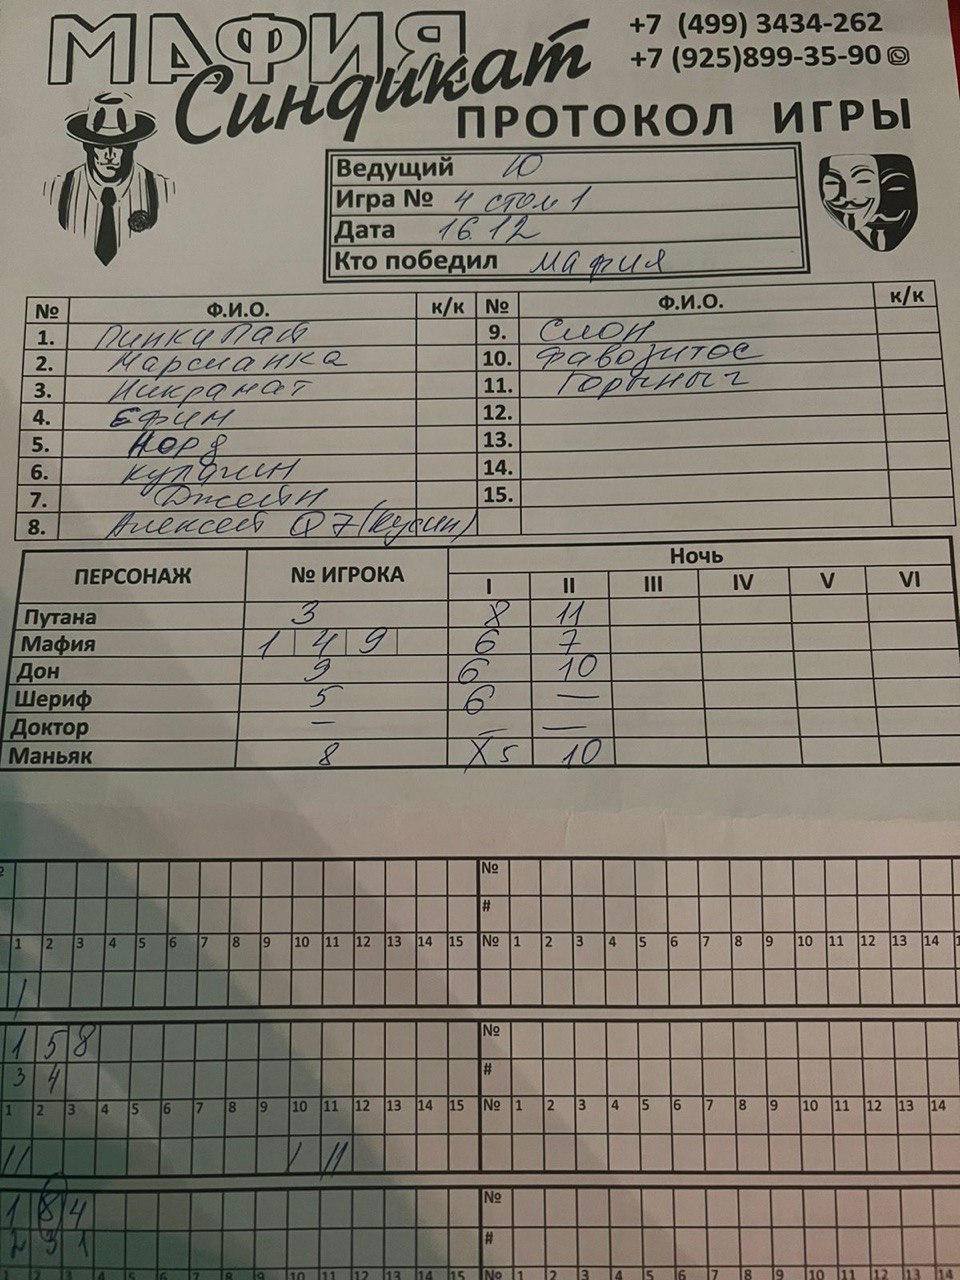 МАФИЯ
Синдикат
+7 (499) 3434-262
+7 (925)899-35-90
ПРОТОКОЛ ИГРЫ
Ведущий Ю
Игра № 4 стол 1
Дата 16.12
Кто победил мафия
№ Ф.И.О. к/к № Ф.И.О. к/к
1. Пинки Пай 9. Слон
2. Марсианка 10. Фавозитос
3. 11. Горыныч
4. Ефим 12.
5. Норд 13.
6. Кулагин 14.
7. Джейн 15.
8. Алексей Q7 (Кусин)
ПЕРСОНАЖ № ИГРОКА Ночь
I II III IV V VI
Путана 3 8 11
Мафия 1 4 9 6 7
Дон 9 6 10
Шериф 5 6 —
Доктор — — —
Маньяк 8 X 5 10
№
#
1 2 3 4 5 6 7 8 9 10 11 12 13 14 15 № 1 2 3 4 5 6 7 8 9 10 11 12 13 14
/
1 5 8 №
3 4 #
1 2 3 4 5 6 7 8 9 10 11 12 13 14 15 № 1 2 3 4 5 6 7 8 9 10 11 12 13 14
// / //
1 8 4 №
2 3 1 #
1 2 3 4 5 6 7 8 9 10 11 12 13 14 15 № 1 2 3 4 5 6 7 8 9 10 11 12 13 14